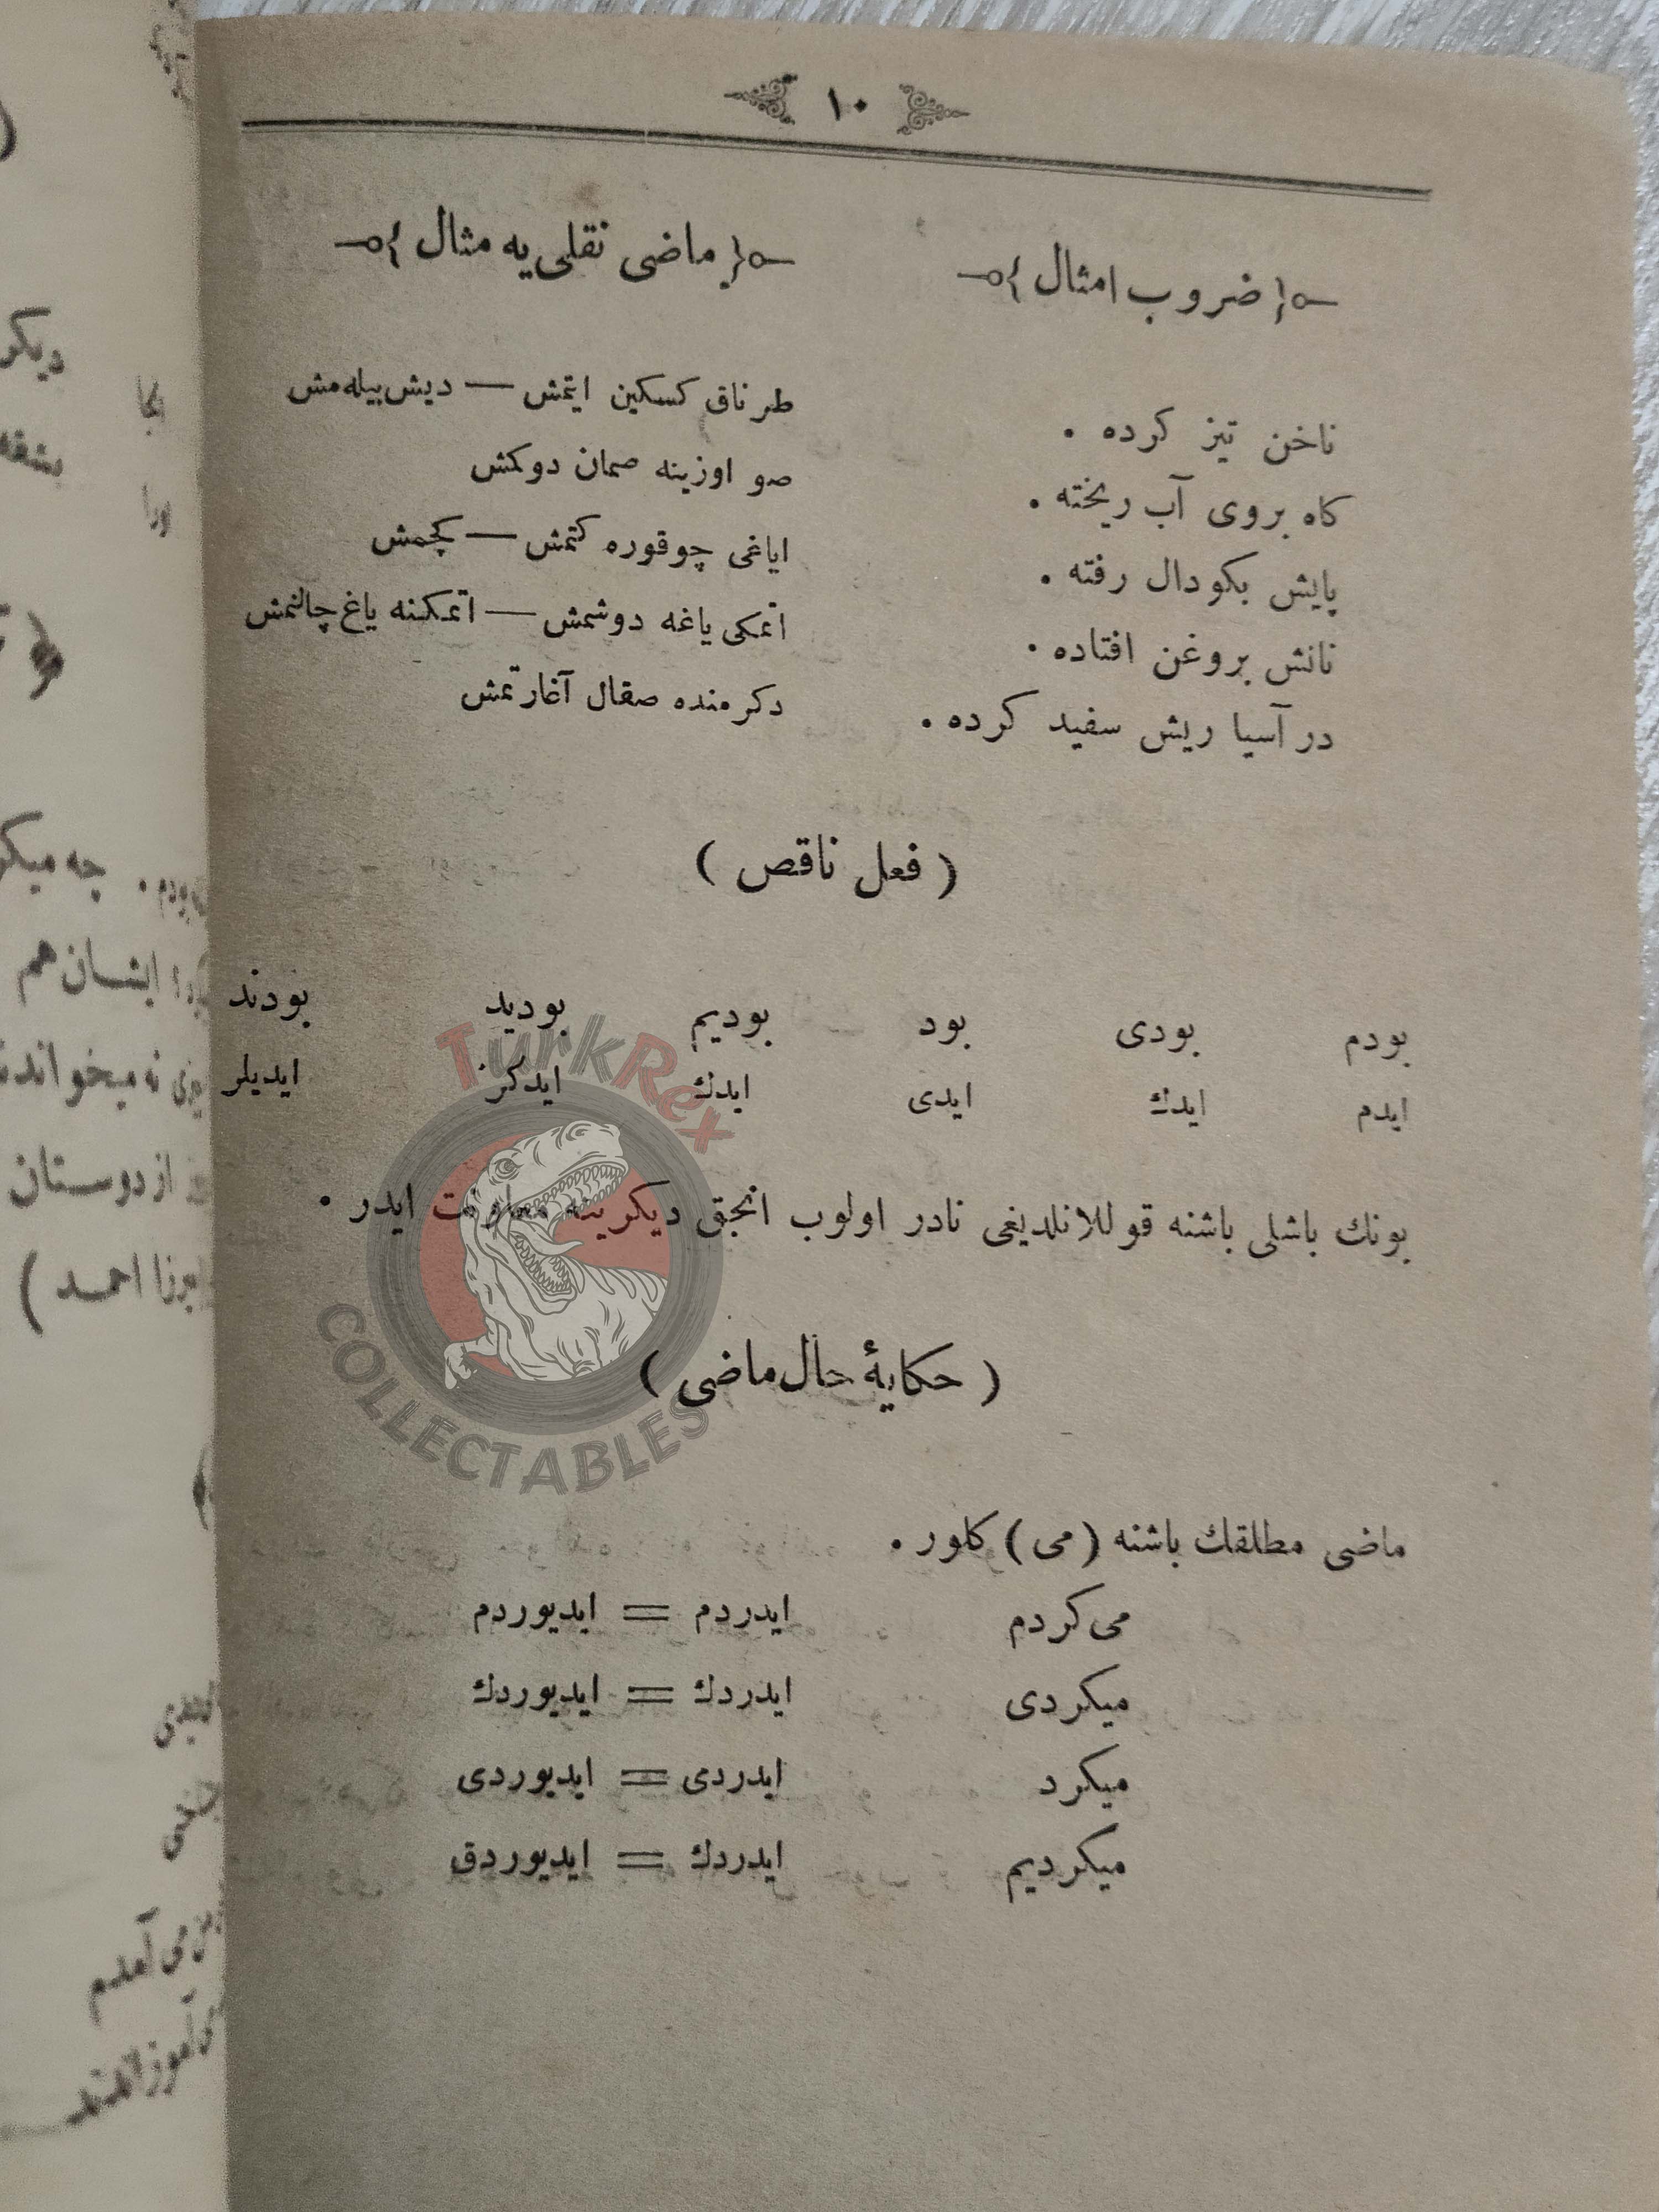 ١٠
ضروب امثال
ماضی نقلی یه مثال
ناخن تیز کرده .
طرناق کسکین ایتمش — دیش بیله مش
کاه بروی آب ریخته .
صو اوزینه صمان دوکمش
پایش بکودال رفته .
ایاغی چوقوره کتمش — کچمش
نانش بروغن افتاده .
اتمکی یاغه دوشمش — اتمکنه یاغ چالنمش
در آسیا ریش سفید کرده .
دکرمنده صقال آغارتمش
( فعل ناقص )
بودم بودی بود بودیم بودید بودند
ایدم ایدك ایدی ایدك ایدکز ایدیلر
بونك باشلی باشنه قوللانلدیغی نادر اولوب انجق دیکرینه معاونت ایدر .
( حکایهٔ حال ماضی )
ماضی مطلقك باشنه ( می ) کلور .
می کردم ایدردم = ایدیوردم
میکردی ایدردك = ایدیوردك
میکرد ایدردی = ایدیوردی
میکردیم ایدردك = ایدیوردق
دیکر
بشقه
ورا
چه میکر
بودم .
ایشان هم
نه میخواندند
از دوستان
میرزا احمد )
می آمدم
TurkRex
COLLECTABLES